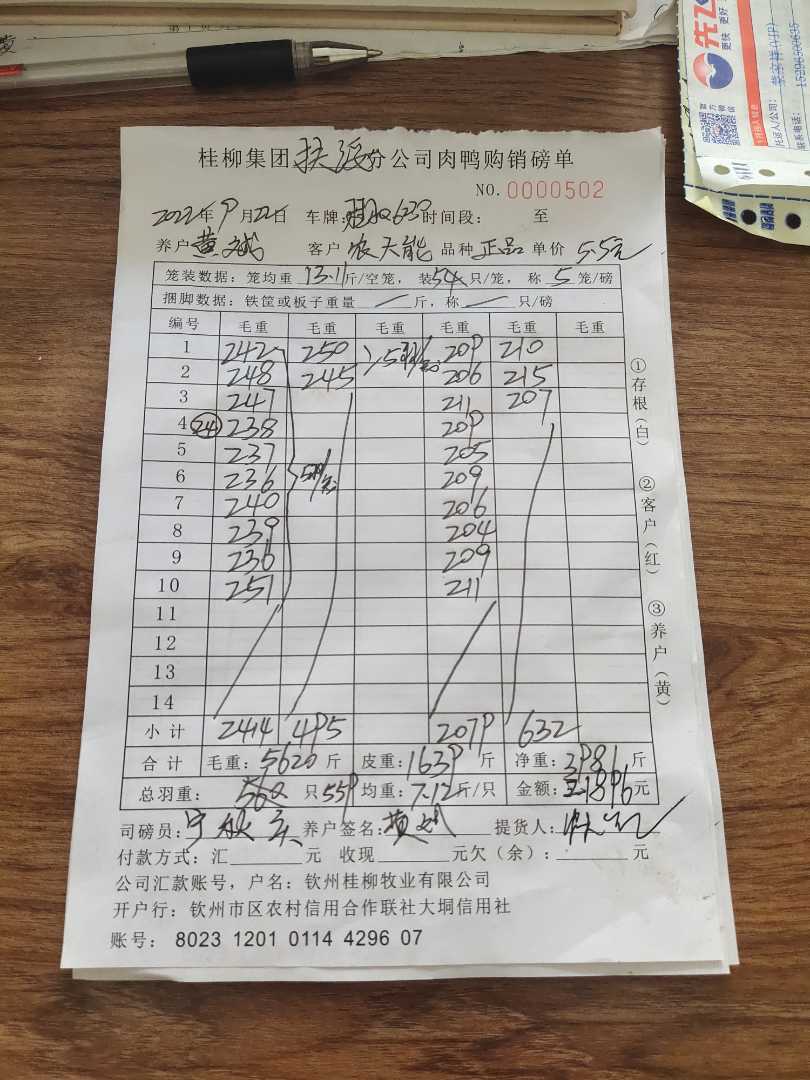 桂柳集团扶绥分公司肉鸭购销磅单
NO. 0000502
2022年9月22日 车牌: 时间段: 至
养户 黄斌 客户 农天能 品种 正品 单价 5.5元
笼装数据: 笼均重 13.11斤/空笼, 装54只/笼, 称 5 笼/磅
捆脚数据: 铁筐或板子重量 / 斤, 称 / 只/磅
编号 毛重 毛重 毛重 毛重 毛重 毛重
1 242 250 209 210
2 248 245 206 215
3 247 211 207
4 24 238 209
5 237 205
6 236 209
7 240 206
8 239 204
9 236 209
10 251 211
11
12
13
14
小计 2414 495 2079 632
合计 毛重: 5620 斤 皮重: 1639 斤 净重: 3981 斤
总羽重: 只 559 均重: 7.12斤/只 金额: 21896元
司磅员: 养户签名: 黄斌 提货人:
付款方式: 汇 元 收现 元欠(余): 元
公司汇款账号, 户名: 钦州桂柳牧业有限公司
开户行: 钦州市区农村信用合作联社大垌信用社
账号: 8023 1201 0114 4296 07
①存根(白)
②客户(红)
③养户(黄)
更快 更好
托运人/公司:
联系电话: